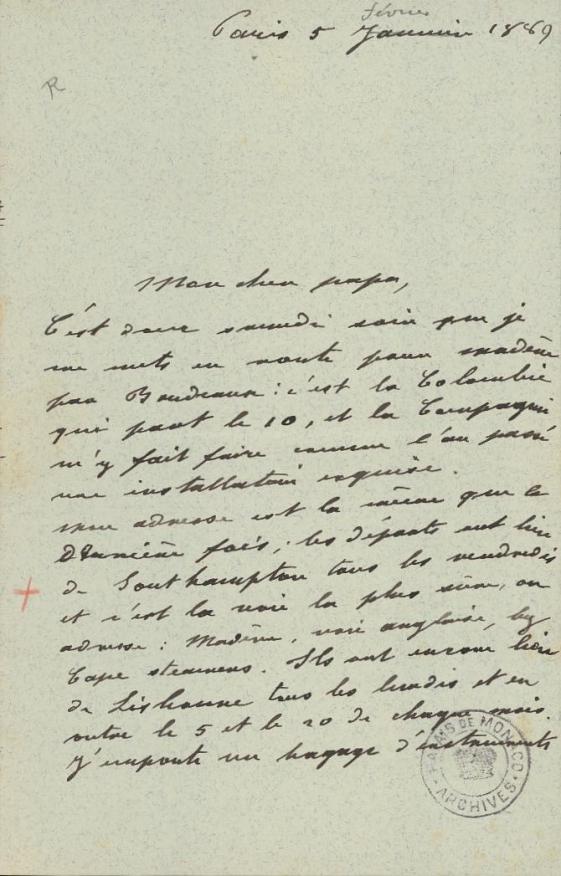 février
Paris 5 Janvier 1889
R
Mon cher papa,
C'est donc samedi soir que je
me mets en route pour Madère
par Bordeaux : c'est la Colombie
qui part le 10, et la Compagnie
m'y fait faire comme l'an passé
une installation exquise.
Mon adresse est la même que la
dernière fois ; les départs ont lieu
de Southampton tous les vendredis
et c'est la voie la plus sûre, on
adresse : Madère, voie anglaise, by
Cape steamers. Ils ont encore lieu
de Lisbonne tous les lundis et en
outre le 5 et le 20 de chaque mois.
J'emporte un bagage d'instruments
PALAIS DE MONACO
ARCHIVES